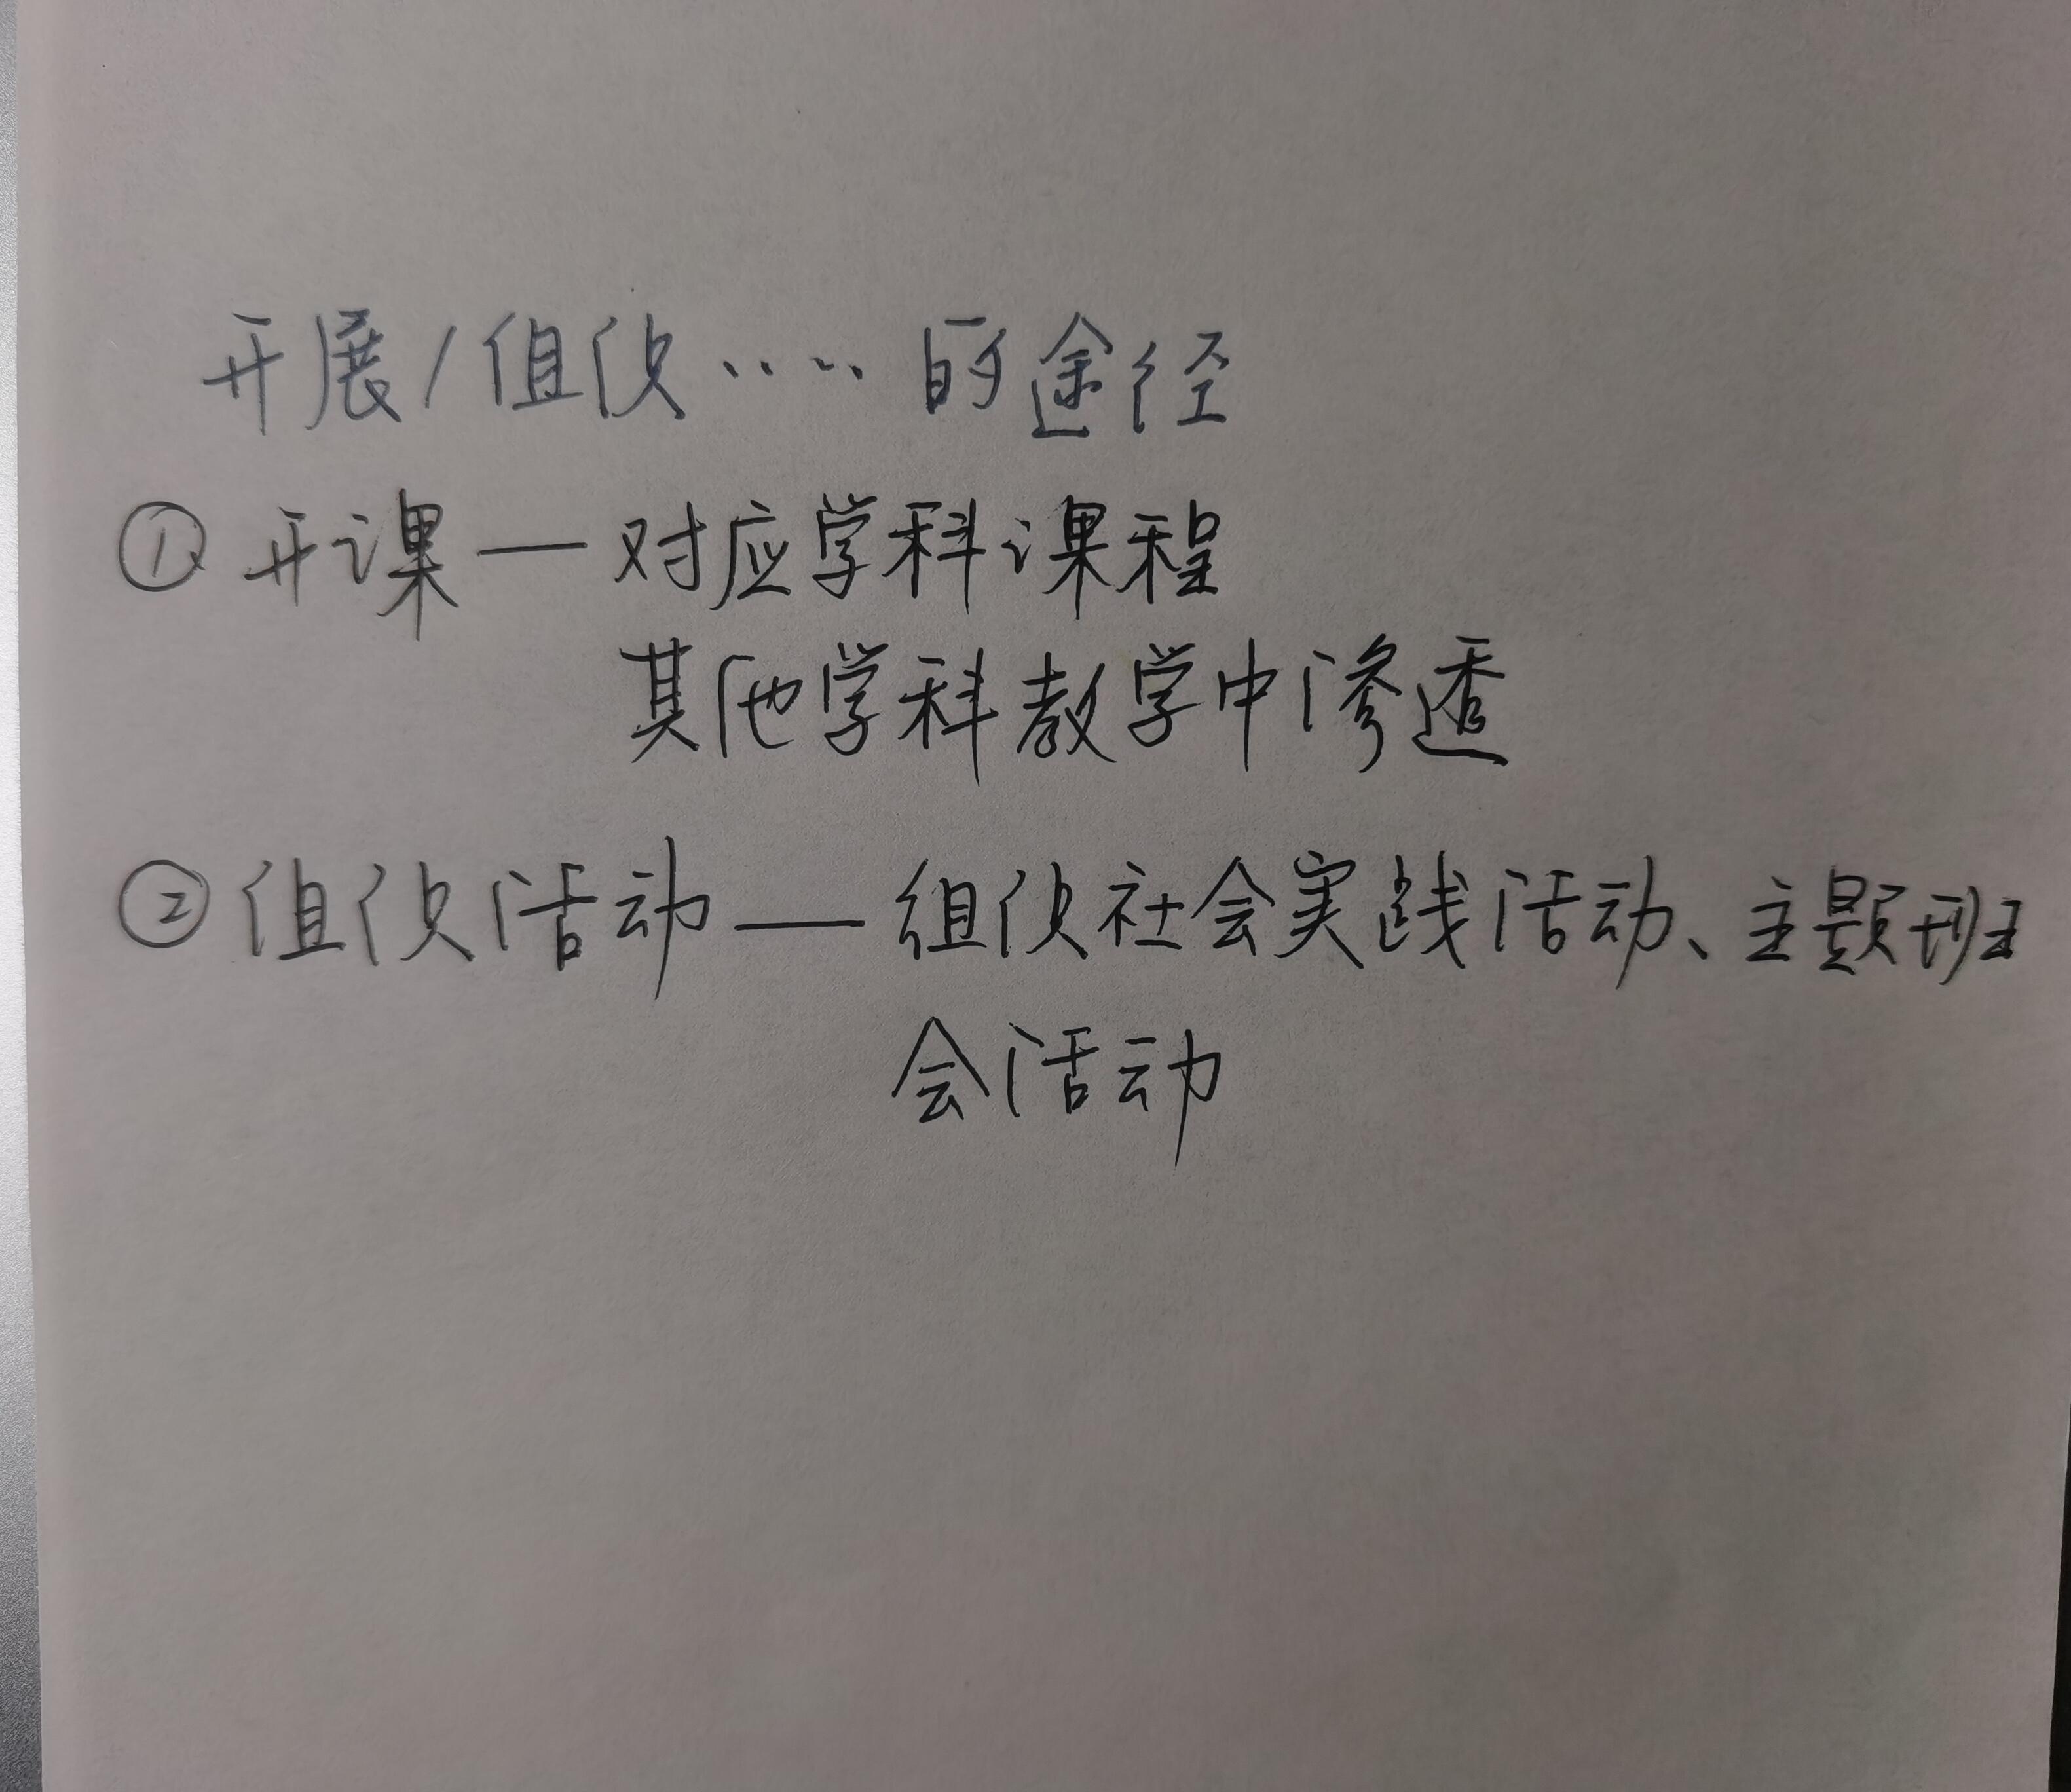 开展/组织……的途径
① 开课 — 对应学科课程
其他学科教学中渗透
② 组织活动 — 组织社会实践活动、主题班
会活动